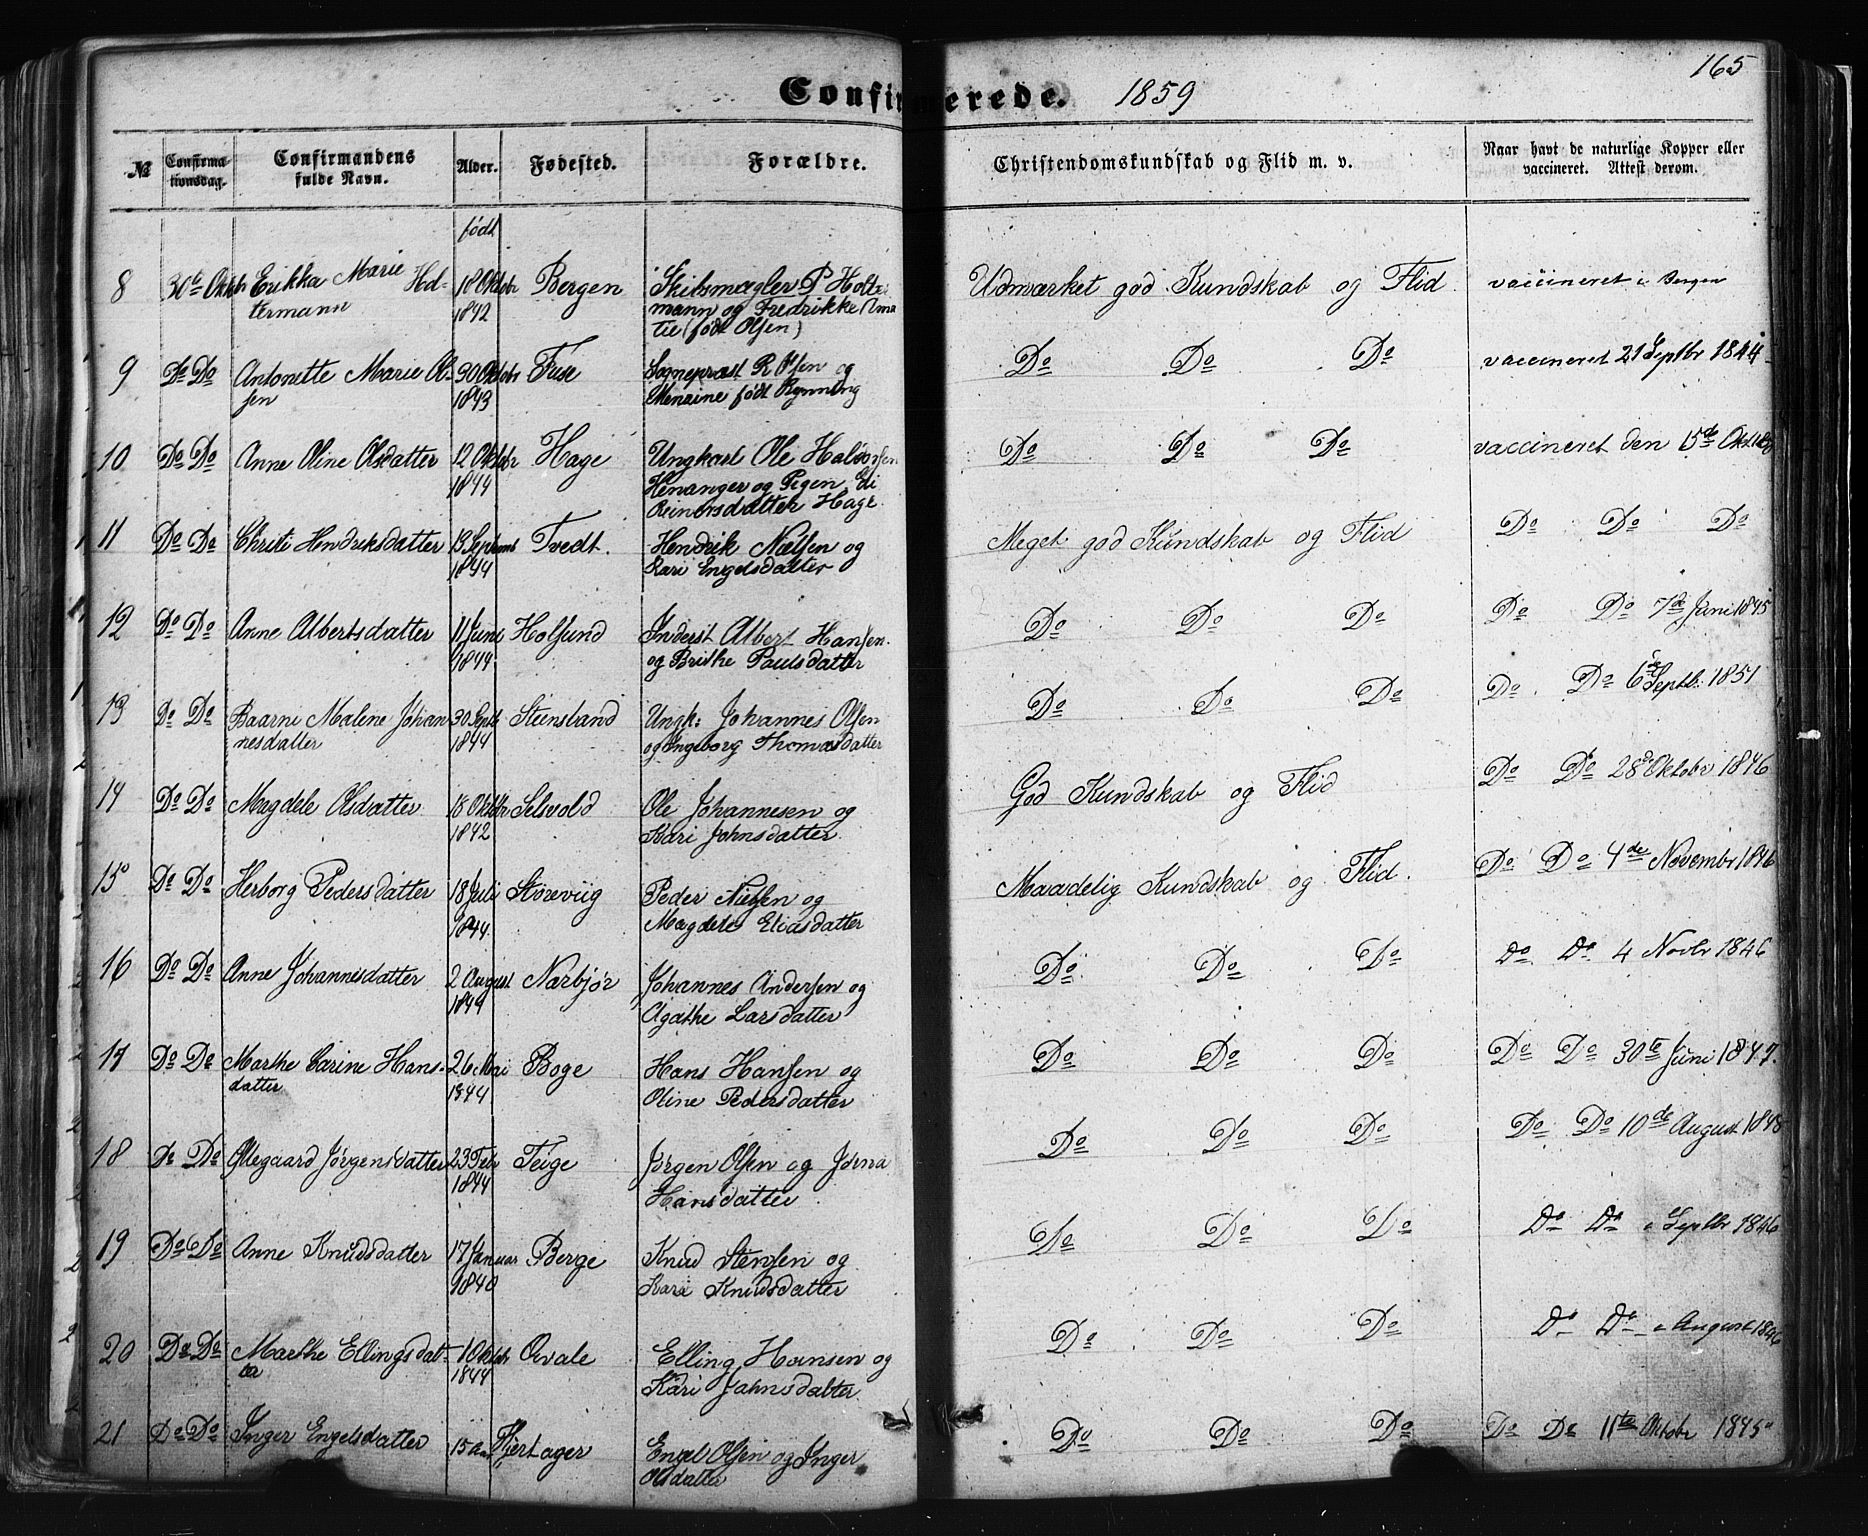 165
Confirmerede. 1859
№ Confirma-tionsdag. Confirmandens fulde Navn. Alder. Fødested. Forældre. Christendomskundskab og Flid m. v. Naar havt de naturlige Kopper eller vaccineret. Attest derom.
født
8 30te Oktbr Erikka Marie Hol- 18 Oktobr Bergen Skibsmægler P Holter- Udmærket god Kundskab og Flid vaccineret i Bergen
termann 1842 mann og Fredrikke Ama
tie (født Olsen)
9 Do Do Antonette Marie Ol- 30 Oktobr Fuse Sognepræst R Olsen og Do Do Do vaccineret 21 Septbr 1844
sen 1843 født Rynning
10 Do Do Anne Oline Olsdatter 12 Oktobr Hage Ungkarl Ole Do Do Do vaccineret den 15de
1844 Henanger og Pigen
Reinersdatter Hage
11 Do Do Christi Hendriksdatter 13 Septemb Tvedt. Hendrik Nielsen og Meget god Kundskab og Flid Do Do Do
1844 Kari Engelsdatter
12 Do Do Anne Albertsdatter 11 Juni Holsund Inderst Albert Hansen Do Do Do Do Do 7de Juni 1845
1844 og Brithe Paulsdatter
13 Do Do Baarni Malene Johan 30 Septb Steinsland Ungk: Johannes Olsen Do Do Do Do Do 6de Septb. 1851
nesdatter 1844 og Ingeborg Thomasdatter
14 Do Do Magdele Olsdatter 18 Oktobr Selvold Ole Johannesen og God Kundskab og Flid Do Do 28de Oktobr 1846
1842 Kari Johnsdatter
15 Do Do Herborg Pedersdatter 18 Juli Støreviig Peder Nielsen og Maadelig Kundskab og Flid. Do Do 4de Novembr 1846
1844 Magdele Eliasdatter
16 Do Do Anne Johannesdatter 2 August Nærbjør Johannes Andersen og Do Do Do Do Do 4 Novbr 1846
1844 Agathe Larsdatter
17 Do Do Marthe Carine Hans- 26 Mai Boge Hans Hansen og Do Do Do Do Do 30te Juni 1847.
datter 1844 Oline Pedersdatter
18 Do Do Ødegaard Jørgensdatter 23 Febr Teige Jørgen Olsen og Jorna Do Do Do Do Do 10de August 1848
1844 Hansdatter
19 Do Do Anne Knudsdatter 17 Januar Berge Knud Stensen og Do Do Do Do Do i Septbr 1846
1840 Kari Knudsdatter
20 Do Do Marthe Ellingsdat- 1 Oktobr Øvale Elling Hansen og Do Do Do Do Do i August 1846
ter 1844 Kari Jahnsdatter
21 Do Do Inger Engelsdatter 15 Aar Hjertager Engel Olsen og Inger Do Do Do Do Do 11te Oktobr 1845
Olsdatter